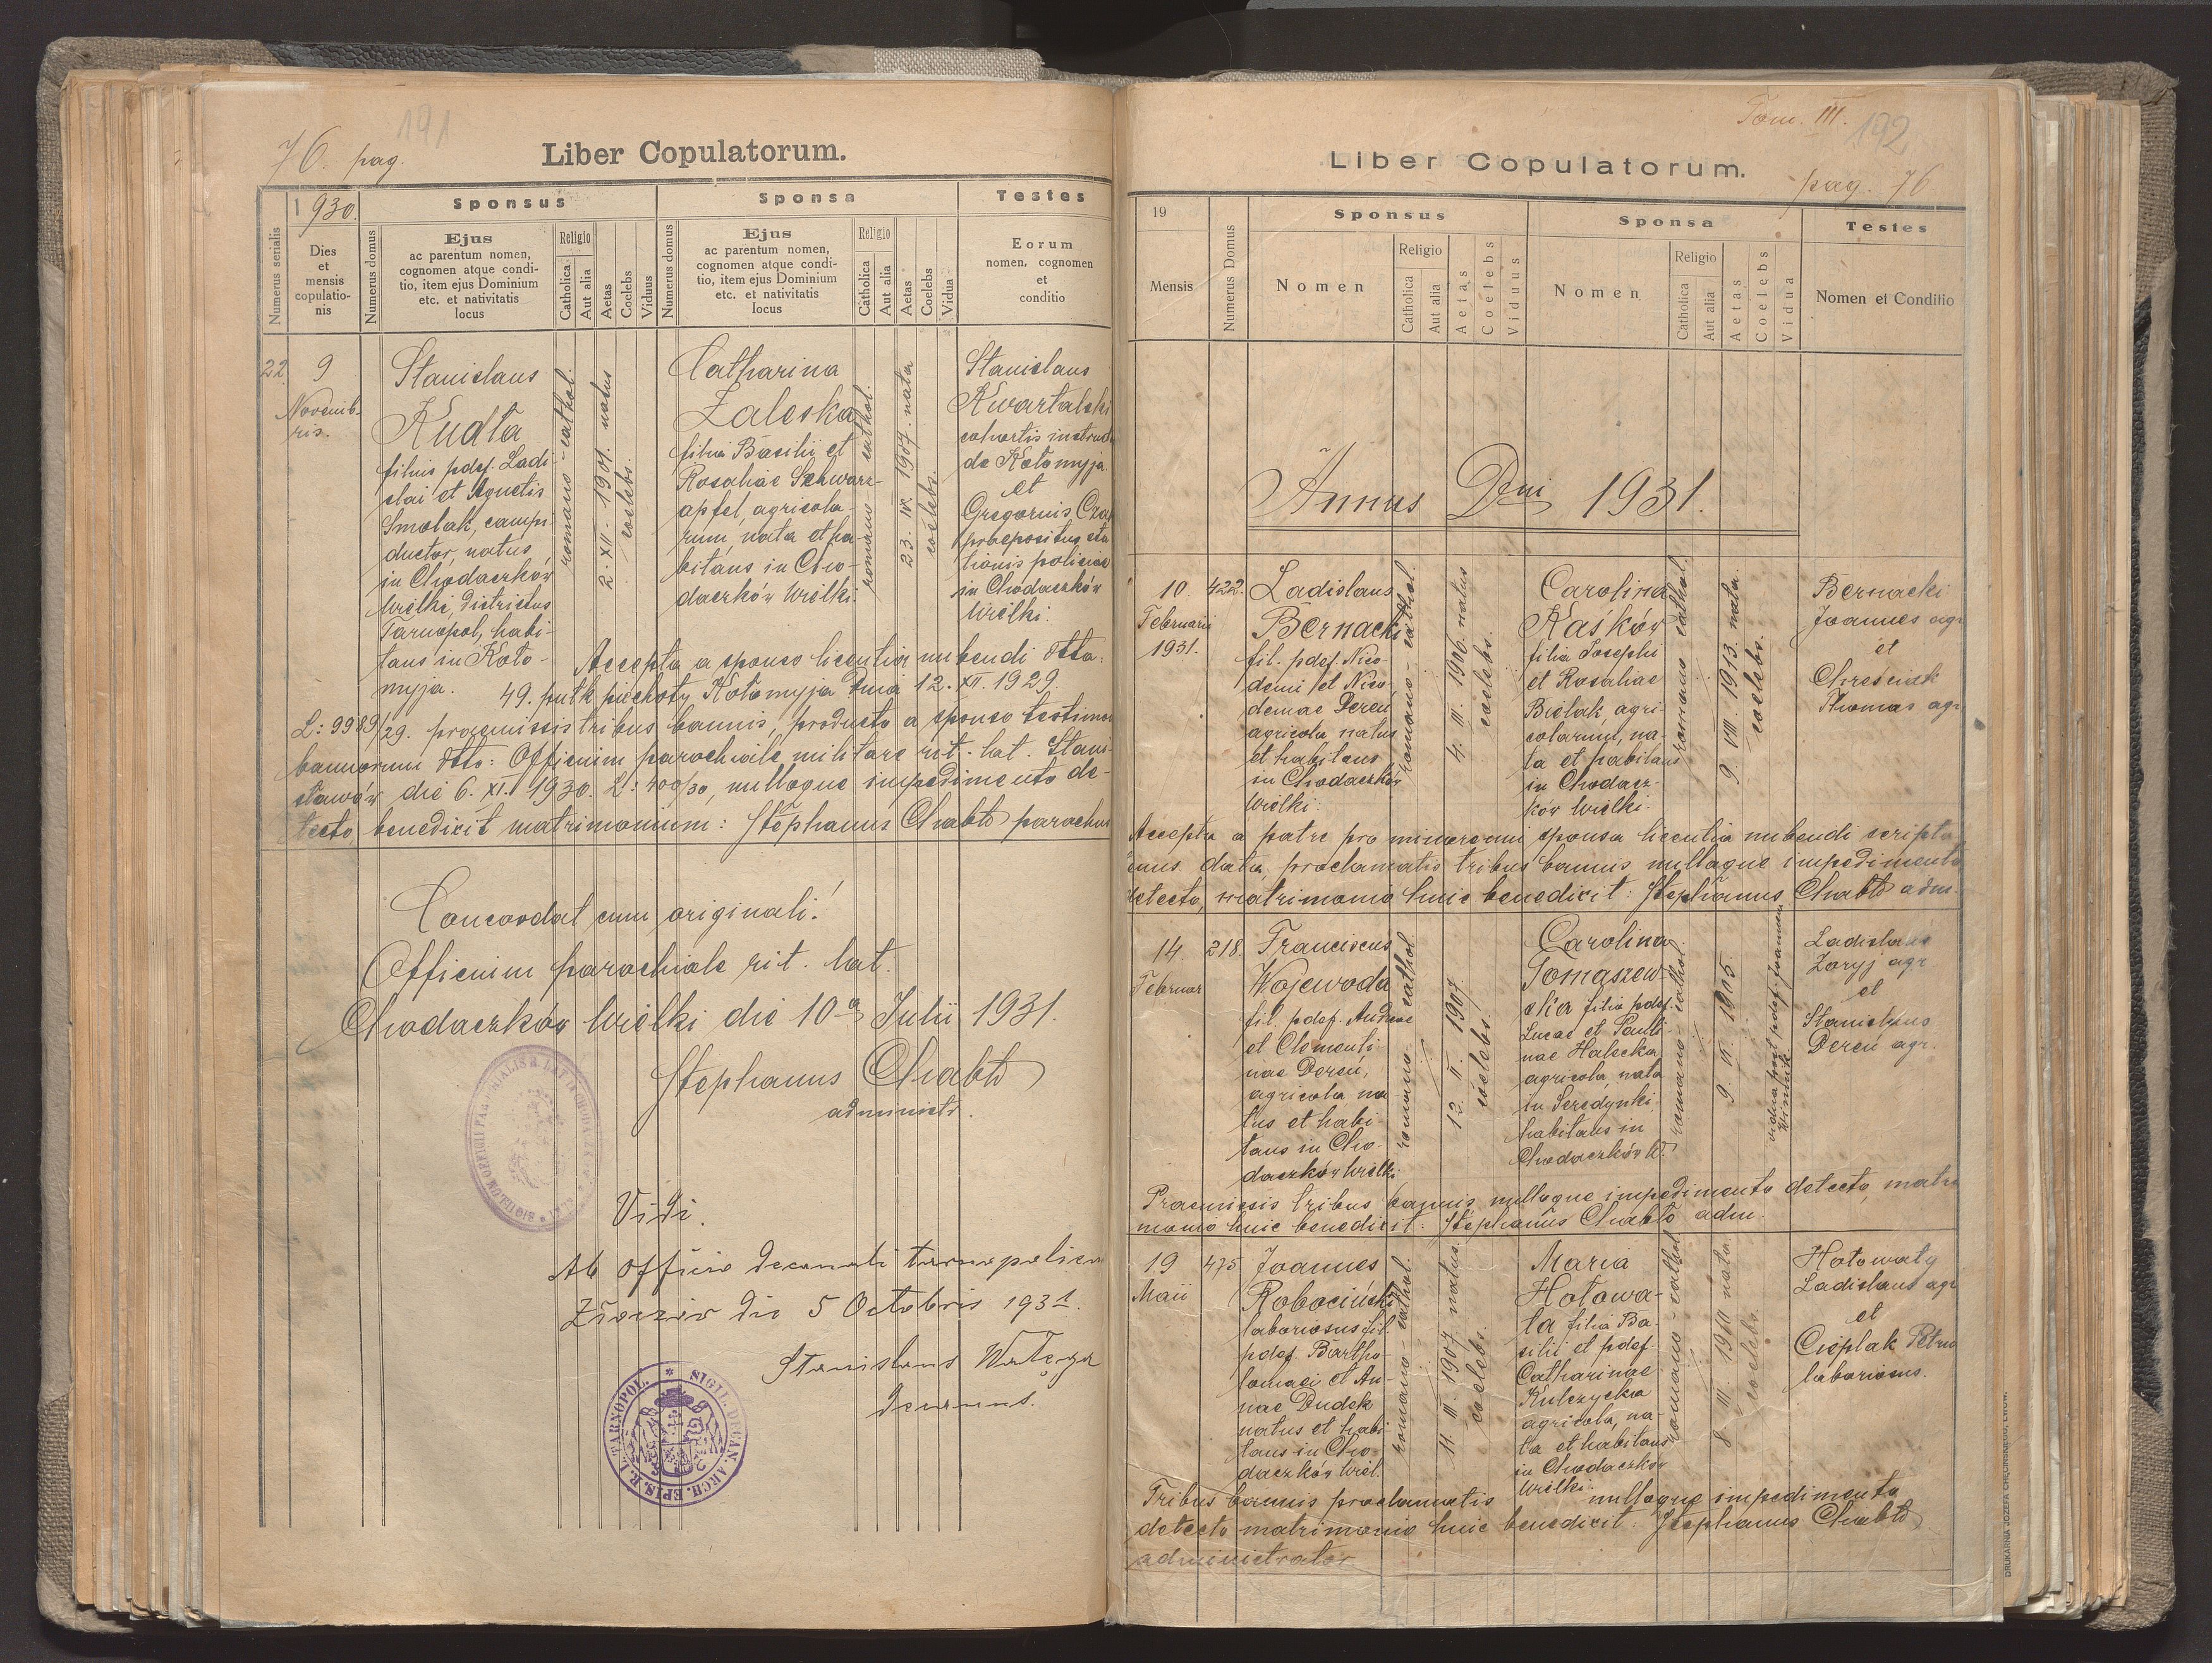 191
76. pag.
Liber Copulatorum.
1930.
Sponsus
Sponsa
Testes
Numerus serialis
Dies
et
mensis
copulatio-
nis
Numerus domus
Ejus
ac parentum nomen,
cognomen atque condi-
tio, item ejus Dominium
etc. et nativitatis
locus
Religio
Catholica
Aut alia
Aetas
Coelebs
Viduus
Numerus domus
Ejus
ac parentum nomen,
cognomen atque condi-
tio, item ejus Dominium
etc. et nativitatis
locus
Religio
Catholica
Aut alia
Aetas
Coelebs
Vidua
Eorum
nomen, cognomen
et
conditio
22.
9
Novemb-
ris.
Stanislaus
Kudła
filius pdef. Ladi-
slai et Agnetis
Smolak, campi
ductor, natus
in Chodaczków
Wielki, districtus
Tarnopol, habi-
tans in Koło-
myja.
romano-cathol.
2. XII. 1901. natus
coelebs.
Catharina
Zaleska
filia Basilii et
Rosaliae Schwarz-
apfel, agricola-
rum, nata et ha-
bitans in Cho-
daczków Wielki.
romano cathol.
23. IV. 1907. nata
coelebs.
Stanislaus
Kwartalski
cohortis
de Kołomyja.
et
Gregorius
praepositus sta
tionis policiae
in Chodaczków
Wielki.
Accepta a sponso licentia nubendi dtto:
49. pułk piechoty Kołomyja dnia 12. XII. 1929.
L: 9989/29. praemissis tribus bannis, producto a sponso testimon
bannorum dtto: Officium parochiale militare rit. lat. Stani-
sławów die 6. XI. 1930. L: 400/30, nulloque impedimento de-
tecto, benedixit matrimonium: Stephanus Chabło parochus
Concordat cum originali!
Officium parochiale rit. lat.
Chodaczków Wielki die 10a Julii 1931.
Stephanus Chabło
administr.
Vidi.
Ab officio decanali tarnopolien
die 5 Octobris 1931.
Stanislaus Wałęga
decanus.
SIGIL. DECAN. ARCH. EPIS. R. L. TARNOPOL.
Tom. III.
192
Liber Copulatorum.
pag. 76
19
Mensis
Numerus Domus
Sponsus
Nomen
Religio
Catholica
Aut alia
Aetas
Coelebs
Viduus
Sponsa
Nomen
Religio
Catholica
Aut alia
Aetas
Coelebs
Vidua
Testes
Nomen et Conditio
Annus Dni 1931.
10
Februarii
1931.
422.
Ladislaus
Bernacki
fil. pdef. Nico-
demi et Nico-
demae Dereń
agricola natus
et habitans
in Chodaczków
Wielki.
romano-cathol.
4. III. 1906. natus
coelebs.
Carolina
Kaśków
filia Josephi
et Rosaliae
Bielak, agri-
colarum, na-
ta et habitans
in Chodacz-
ków Wielki.
romano-cathol.
9. VIII. 1913. nata.
coelebs.
Bernacki
Joannes agr
et
Chreściak
Thomas agr
Accepta a patre pro minorenni sponsa licentia nubendi scripto
data, proclamatis tribus bannis nulloque impedimento
detecto, matrimonio huic benedixit: Stephanus Chabło adm.
14.
Februar
218.
Franciscus
Wojewoda
fil. pdef. Andreae
et Clementi-
nae Dereń,
agricola na-
tus et habi-
tans in Cho-
daczków Wielki
romano-cathol.
12. II. 1907
coelebs.
Carolina
Tomaszew-
ska filia pdef.
Lucae et Pauli-
nae Halecka
agricola, nata
in Seredynki
habitans in
Chodaczków W.
romano-cathol.
9. II. 1905.
vidua post pdef. Joannem
Ladislaus
Zoryj agr
et
Stanislaus
Dereń agr.
Praemissis tribus bannis, nulloque impedimento detecto, matri
monio huic benedixit: Stephanus Chabło adm.
19
Maii
475
Joannes
Robociński
laboriosus fil.
pdef. Bartho-
lomaei et An-
nae Dudek
natus et habi-
tans in Cho-
daczków Wiel.
romano-cathol.
11. III. 1907 natus.
coelebs.
Maria
Hołowa-
ta filia Ba-
silii et pdef.
Catharinae
Kulczycka
agricola, na-
ta et habitans
in Chodaczków
Wielki.
romano-cathol.
8. III. 1910 nata
coelebs.
Hołowaty
Ladislaus agr
et
Cieplak Petrus
laboriosus.
Tribus bannis proclamatis nulloque impedimento
detecto matrimonio huic benedixit: Stephanus Chabło
administrator